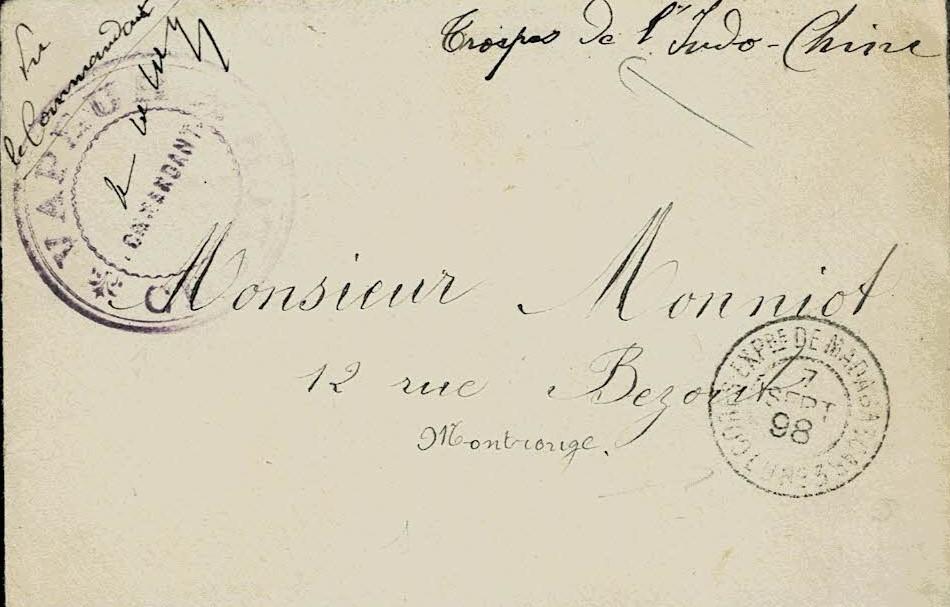 Troupes de l'Indo-Chine
Vu
le Commandant
VAPEUR
COMMANDANT
Monsieur Monniot
12 rue Bezout
Montrouge.
CORPS EXPRE DE MADAGASCAR
7
SEPT
98